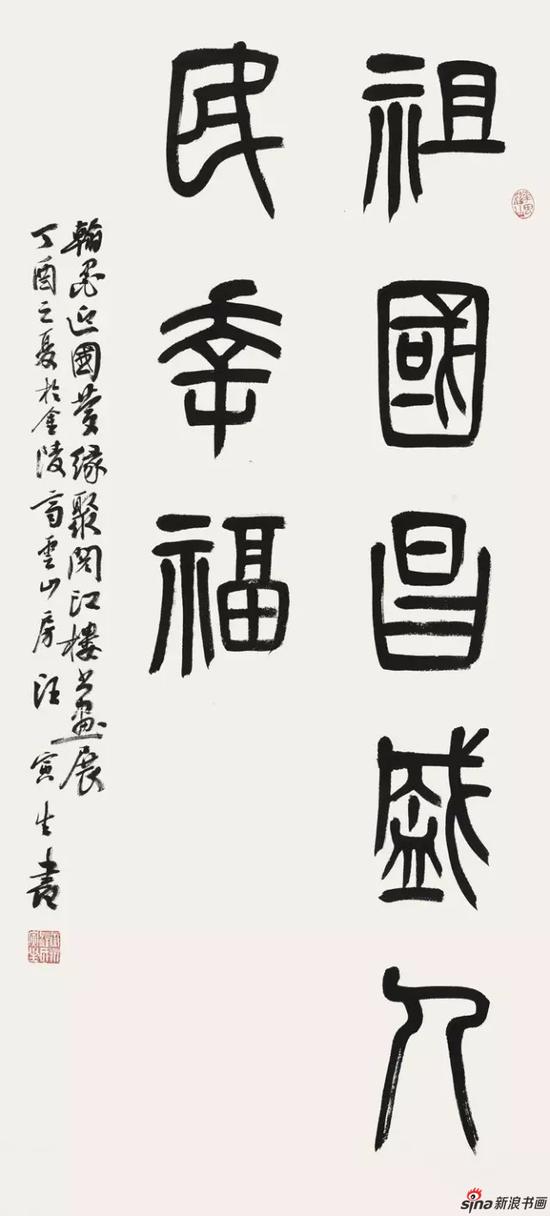 祖國昌盛人
民幸福
翰墨迎國慶緣聚閱江樓書畫展
丁酉之夏於金陵高雲山房汪寅生書
sina新浪书画